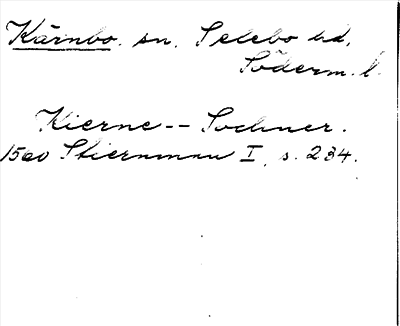 Kärnbo. sn. Selebo hd.
Söderm. l.
Kierne-- Sochner.
1500 Stiernman I, s. 234.